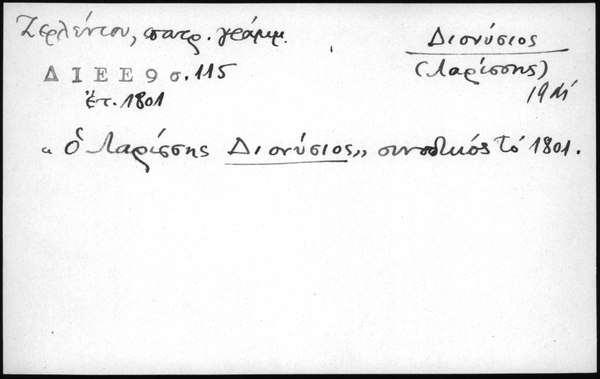 Ζερλέντου, πατρ. γράμμ.
Διονύσιος
Δ Ι Ε Ε 9 σ. 115
(Λαρίσσης)
ἔτ. 1801
19
« ὁ Λαρίσσης Διονύσιος,, συνοδικός τό 1801.